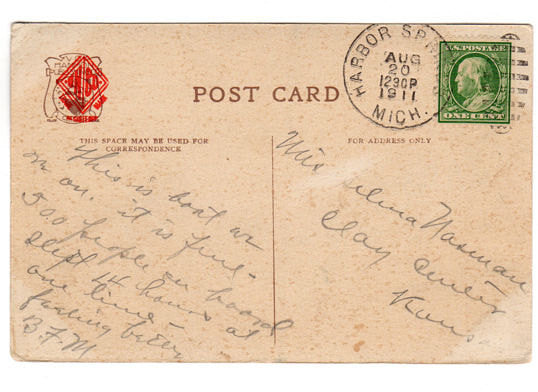 HARBOR SPR
AUG
20
1230P
1911
MICH.
U.S. POSTAGE
ONE CENT
POST CARD
THIS SPACE MAY BE USED FOR
CORRESPONDENCE
FOR ADDRESS ONLY
This is boat we
on. it is fine-
500 people on board
slept 14 hours at
one time-
feeling better
B.F.M
Miss Selma Nasman
Clay Center
Kans